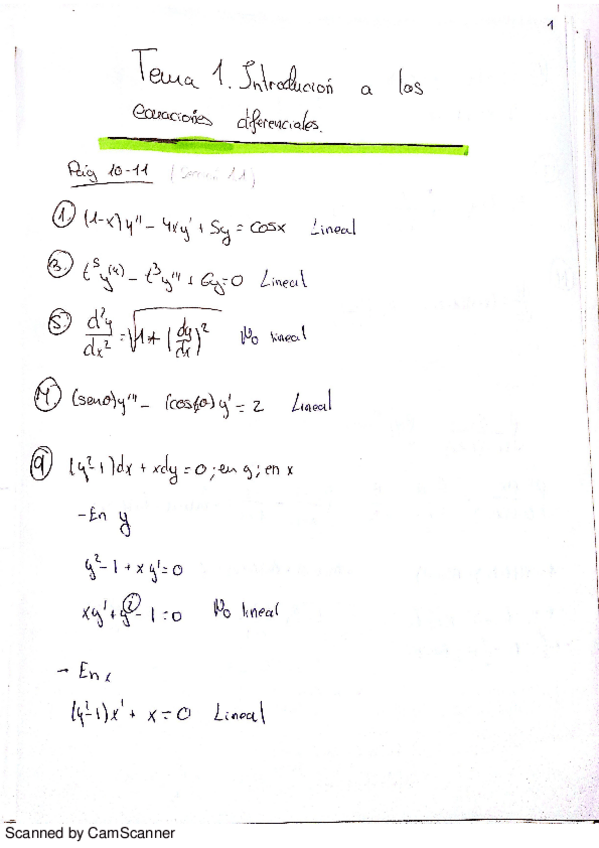 1
Tema 1. Introducción a los
ecuaciones diferenciales.
Pág 10-11
1. (1-x)y'' - 4xy' + 5y = cosx Lineal
3. t⁵y⁽⁴⁾ - t³y'' + 6y=0 Lineal
5. d²y/dx² = √(1+(dy/dx)²) No lineal
(senθ)y''' - (cosθ)y' = 2 Lineal
9 (y²-1)dx + xdy = 0; en y; en x
-En y
y²-1 + xy' = 0
xy' + y² - 1 = 0 No lineal
- En x
(y²-1)x' + x = 0 Lineal
Scanned by CamScanner